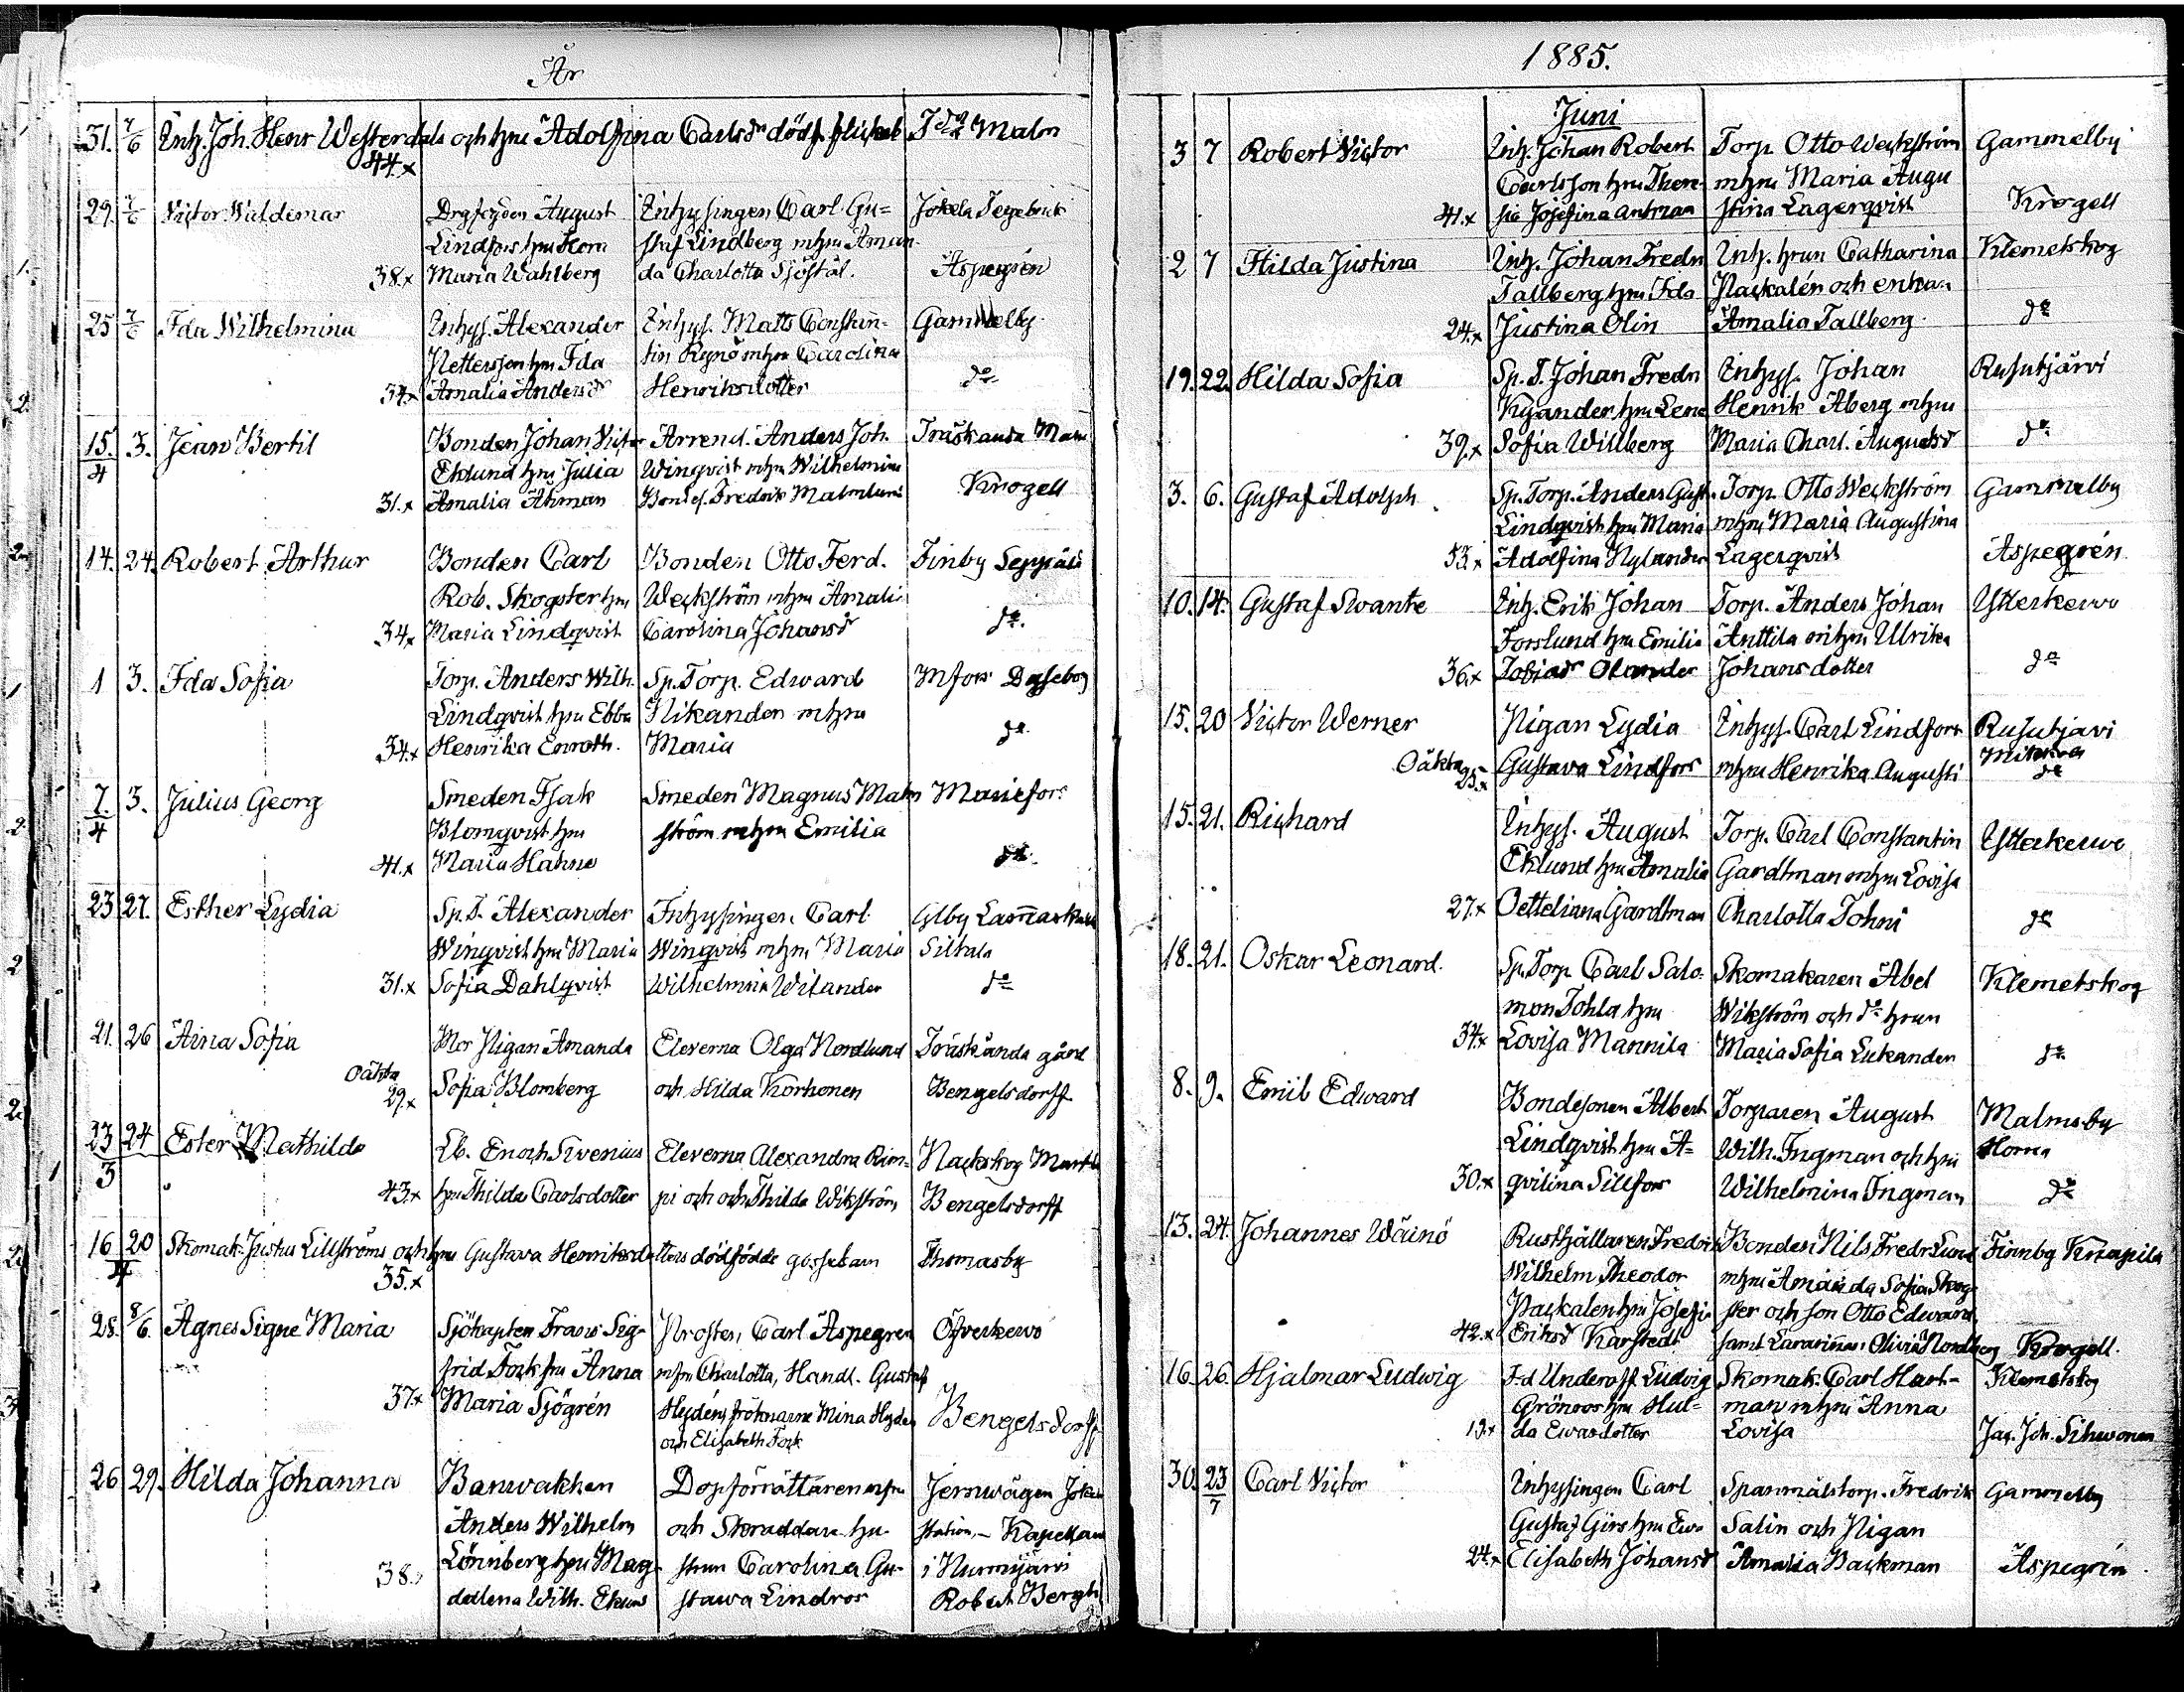 År
31. 7/6 Inh. Joh. Henr Westerdals och hu Adolfina Carlsdr dödf. flickeb Malm
44.x
29. 7/6 Victor Waldemar August Inhysingen Carl Gu= Jokela Tegelbruk
Lindfors hu Flora staf Lindberg m hu Aman
38.x Maria Wahlberg da Charlotta Sjöstål. Aspegrén
25 7/6 Ida Wilhelmina Inhys. Alexander Inhys. Matts Constan- Gammelby
Pettersson hu Ida tin m hu Carolina
34.x Amalia Andersd Henriksdotter do
15./4 3. Jean Bertil Bonden Johan Victor Arrend. Anders Joh. Träskända
Eklund hu Julia Winqvist m hu Wilhelmina
31.x Amalia Åhman Fredrik Malmlund Krogell
14. 24. Robert Arthur Bonden Carl Bonden Otto Ferd. Finby Seppälä
Rob. Skogster hu Weckström m hu Amali
34.x Maria Lindqvist Carolina Johansd do.
1 3. Ida Sofia Torp. Anders Wilh. Sp. Torp. Edward Mfors
Lindqvist hu Ebba Nikander m hu
34.x Henrika Enroth. Maria do.
7./4 3. Julius Georg Smeden Isak Smeden Magnus Malm Mariefors
Blomqvist hu ström m hu Emilia
41.x Maria Hahne do.
23 27. Esther Lydia Sp. T. Alexander Inhysingen Carl Glby
Winqvist hu Maria Winqvist m hu Maria
31.x Sofia Dahlqvist Wilhelmina Wilander do
21. 26 Aina Sofia Mor Pigan Amanda Eleverna Olga Nordlund Träskända gård
Oäkta
29.x Sofia Blomberg och Hilda Korhonen Bengelsdorff
23/3 24 Ester Mathilda Lb. Enoch Swenius Eleverna Alexandra Rim- Nackskog
43.x hu Thilda Carlsdotter pi och Thilda Wikström Bengelsdorff
16 20/4 Skomak. Justus Lillströms och hu Gustava Henriksdotters dödfödda gossebarn Thomasby
35.x
28. 8/6. Agnes Signe Maria Sjökapten Frans Sig- Prosten, Carl Aspegren Öfverkervo
frid Fork fru Anna m fru Charlotta, Handl. Gustaf
37.x Maria Sjögrén Hydén, fröknarne Mina Hydén Bengelsdorff
och Elisabeth Fork
26 29. Hilda Johanna Banvakten Dopförrättaren m fru Jernvägen Jokela
Anders Wilhelm och Skräddare hu- station, - Kapellan
38.x Lönnberg hu Mag- strun Carolina Gu- i Nurmijärvi
dalena Wilh. stava Lindros Robert Bergh
1885.
Juni
3 7 Robert Victor Inh. Johan Robert Torp. Otto Weckström Gammelby
Carlsson hu There- m hu Maria Augu
41.x sia Josefina Antman stina Lagerqvist Krogell
2 7 Hilda Justina Inh. Johan Fredr Inh. hrun Catharina Klemetskog
Tallberg hu Ida Packalén och enkan
24.x Justina Olin Amalia Tallberg. do
19. 22. Hilda Sofia Sp. T. Johan Fredr Inhys. Johan Rusutjärvi
Kyander hu Lena Henrik Åberg m hu
39.x Sofia Willberg Maria Charl. Augustsd do
3. 6. Gustaf Adolph Sp. Torp. Anders Gust. Torp. Otto Weckström Gammelby
Lindqvist hu Maria m hu Maria Augustina
33.x Adolfina Nylander Lagerqvist Aspegrén
10. 14. Gustaf Swante Inh. Erik Johan Torp. Anders Johan Ytterkervo
Forslund hu Emilia Anttila m hu Ulrika
36.x Tobiasd Olander Johansdotter do
15. 20 Victor Werner Pigan Lydia Inhys. Carl Lindfors Rusutjärvi
Oäkta 25.x Gustava Lindfors m hu Henrika Augusti do
15. 21. Richard Inhys. August Torp. Carl Constantin Ytterkervo
Eklund hu Amalia Gardtman m hu Lovisa
27.x Oetteliana Gardtman Charlotta do
18. 21. Oskar Leonard. Sp. Torp. Carl Salo- Skomakaren Abel Klemetskog
mon Tohla hu Wikström och do hrun
34.x Lovisa Mannila Maria Sofia Lukander do.
8. 9. Emil Edward Bondesonen Albert Torparen August Malmsby
Lindqvist hu A- Wilh. Ingman och hu
30.x qvilina Sillfors Wilhelmina Ingman do
13. 24. Johannes Wäinö Rusthållaren Fredrik Bonden Nils Fredr Lund Finnby Knapila
Wilhelm Theodor m hu Amanda Sofia Skog
Packalen hu Josefi ster och son Otto Edward
42.x Eriksd Karstedt samt Lärarinnan Olivia Nordberg Krogell.
16. 26. Hjalmar Ludwig Fd Underoff. Ludvig Skomak. Carl Hart- Klemetskog
Grönroos hu Hul- man m hu Anna
19.x da Evasdotter Lovisa Jac. Joh. Sihvonen
30. 23/7 Carl Victor Inhysingen Carl Spanmålstorp. Fredrik Gammelby
Gustaf Girs hu Eva Salin och Pigan
24.x Elisabeth Johansd Amalia Backman Aspegrén